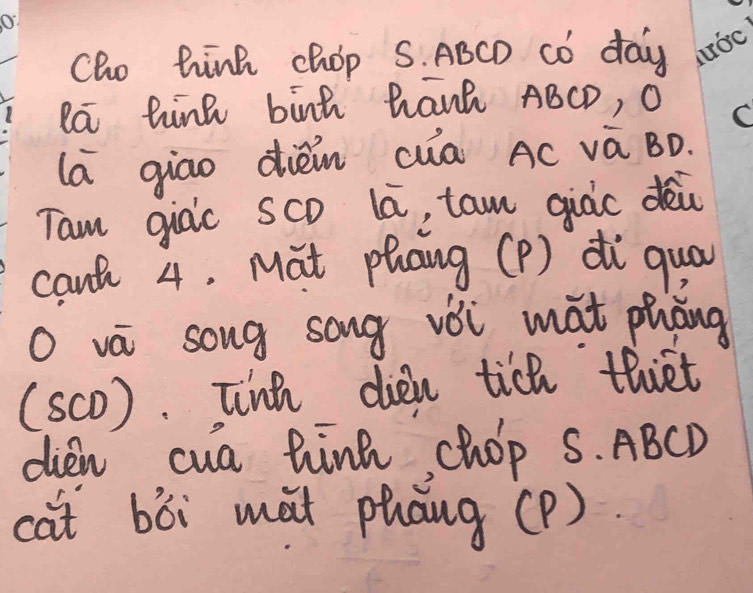 Cho hình chóp S.ABCD có đáy
là hình bình hành ABCD, O
là giao điểm của AC và BD.
Tam giác SCD là tam giác đều
cạnh 4. Mặt phẳng (P) đi qua
O và song song với mặt phẳng
(SCD). Tính diện tích thiết
diện của hình chóp S.ABCD
cắt bởi mặt phẳng (P).
ước